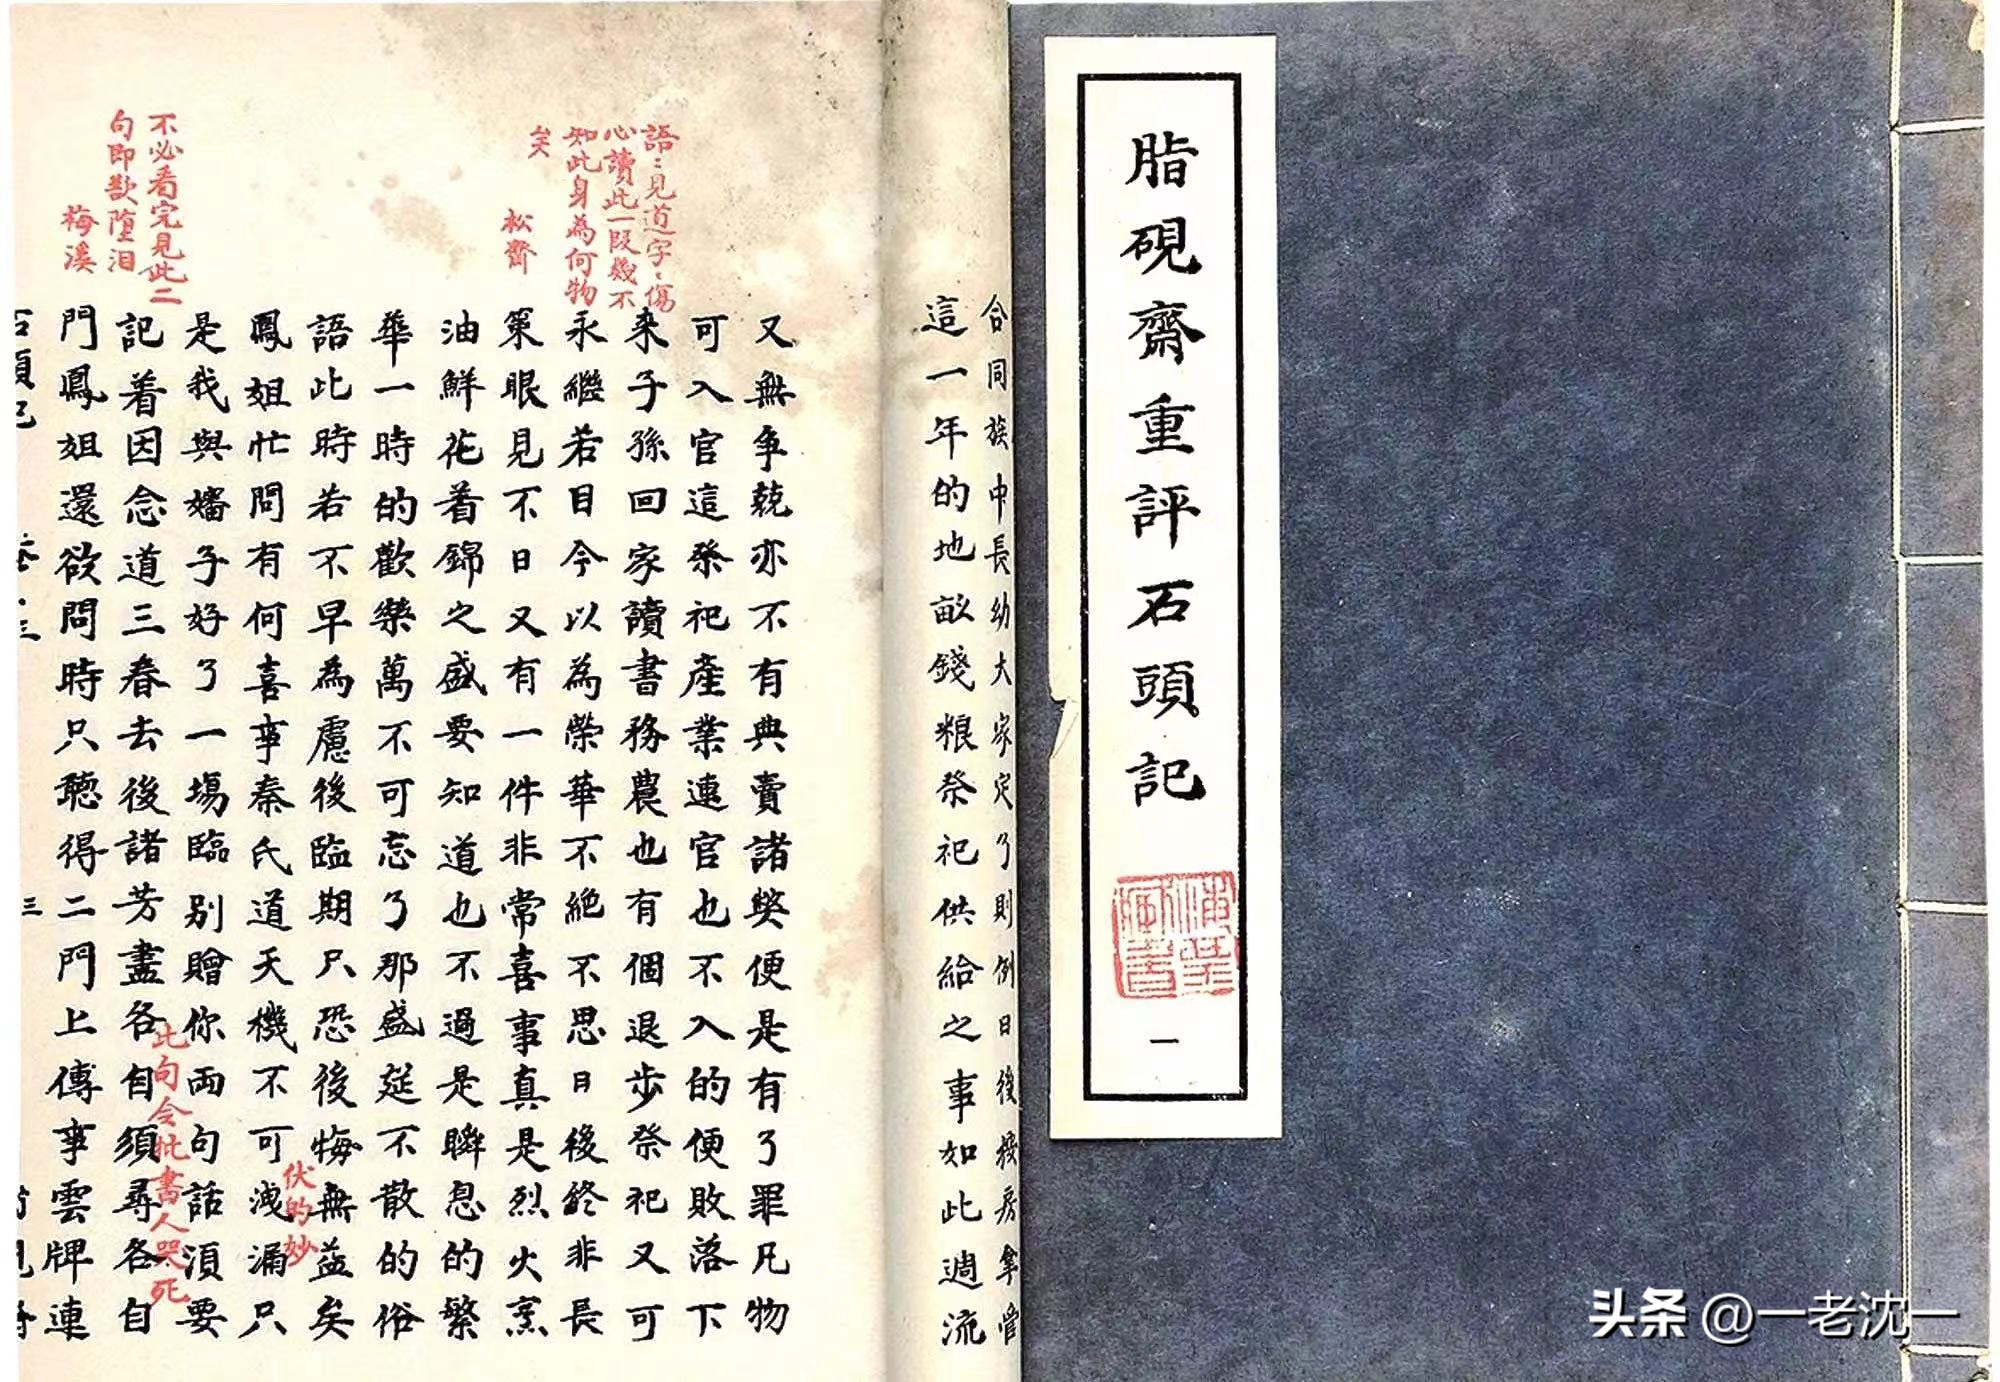 脂硯齋重評石頭記
一
合同族中長幼大家定了則例日後按房拿管
這一年的地畝錢粮祭祀供給之事如此週流
又無爭競亦不有典賣諸獘便是有了罪凡物
可入官這祭祀產業連官也不入的便敗落下
来子孫回家讀書務農也有個退步祭祀又可
永繼若目今以為榮華不絕不思日後終非長
策眼見不日又有一件非常喜事真是烈火烹
油鮮花着錦之盛要知道也不過是瞬息的繁
華一時的歡樂萬不可忘了那盛筵不散的俗
語此時若不早為慮後臨期只恐後悔無益矣
鳳姐忙問有何喜事秦氏道天機不可洩漏只
是我與嬸子好了一場臨别贈你両句話湏要
記着因念道三春去後諸芳盡各自須尋各自
門鳳姐還欲問時只聽得二門上傳事雲牌連
石頭記
三
語:見道字:傷
心讀此一段幾不
知此身為何物
矣
松齋
不必看完見此二
句即歎堕泪
梅溪
伏的妙
此句令批書人哭死
头条 @一老沈一